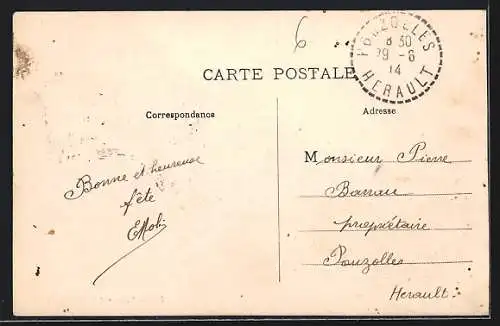 6
POUZOLLES
8 30
29 - 6
14
HERAULT
CARTE POSTALE
Correspondance
Adresse
Bonne et heureuse
fête
Monsieur Pierre
Barrau
propriétaire
Pouzolles
Herault